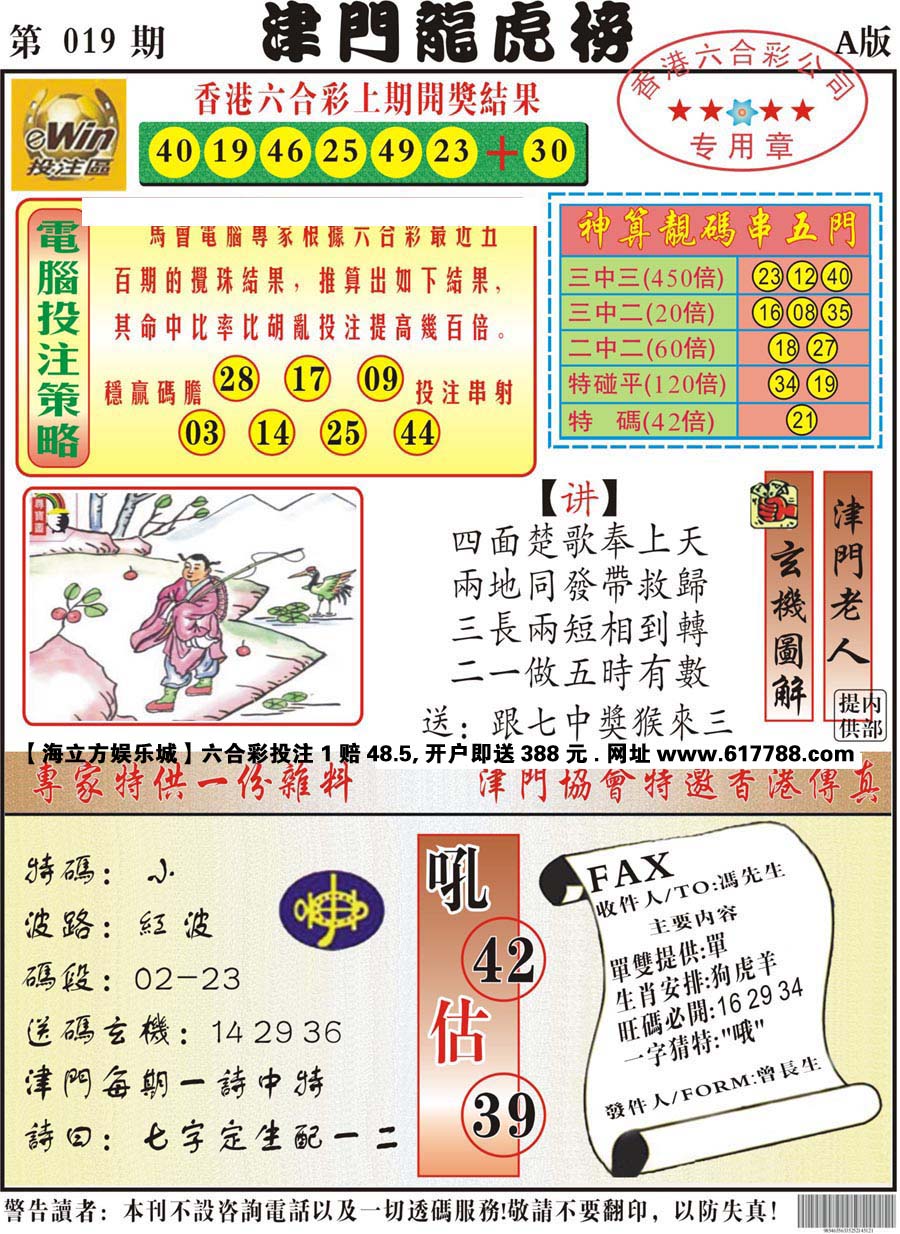 第 019 期
津門龍虎榜
A版
香港六合彩公司
专用章
eWin
投注區
香港六合彩上期開獎結果
40 19 46 25 49 23 + 30
電腦投注策略
馬會電腦專家根據六合彩最近五
百期的攪珠結果，推算出如下結果，
其命中比率比胡亂投注提高幾百倍。
穩贏碼膽 28 17 09 投注串射
03 14 25 44
神算靚碼串五門
三中三(450倍) 23 12 40
三中二(20倍) 16 08 35
二中二(60倍) 18 27
特碰平(120倍) 34 19
特 碼(42倍) 21
尋寶圖
【讲】
四面楚歌奉上天
兩地同發帶救歸
三長兩短相到轉
二一做五時有數
送：跟七中獎猴來三
玄機圖解
津門老人
内部提供
【海立方娱乐城】六合彩投注1赔48.5,开户即送388元.网址www.617788.com
專家特供一份雜料
津門協會特邀香港傳真
特碼：小
波路：紅波
碼段：02-23
送碼玄機：14 29 36
津門每期一詩中特
詩曰：七字定生配一二
吼
42
估
39
FAX
收件人/TO:馮先生
主要内容
單雙提供:單
生肖安排:狗虎羊
旺碼必開:16 29 34
一字猜特:"哦"
發件人/FORM:曾長生
警告讀者：本刊不設咨詢電話以及一切透碼服務!敬請不要翻印，以防失真!